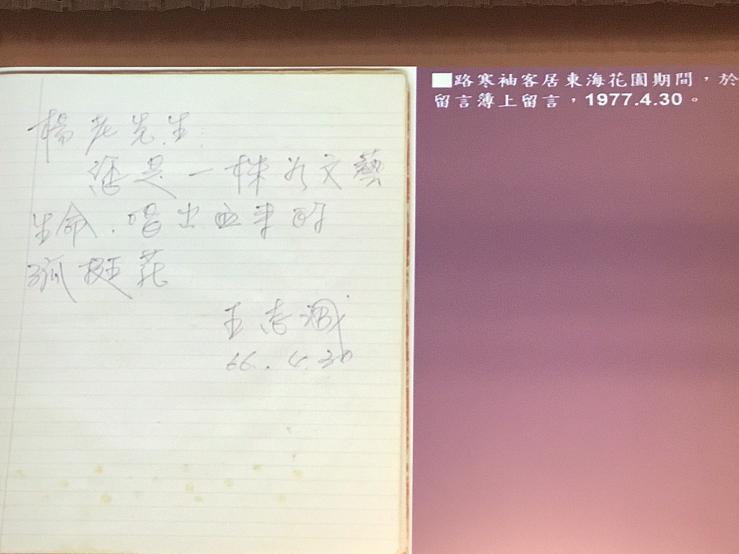 楊老先生：
您是一株為文藝
生命，唱出血來的
孤挺花
王志誠
66.4.30
■路寒袖客居東海花園期間，於
留言簿上留言，1977.4.30。